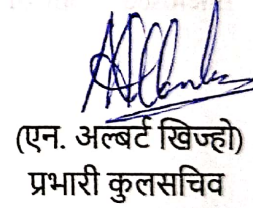 (एन. अल्बर्ट खिज्हो)
प्रभारी कुलसचिव